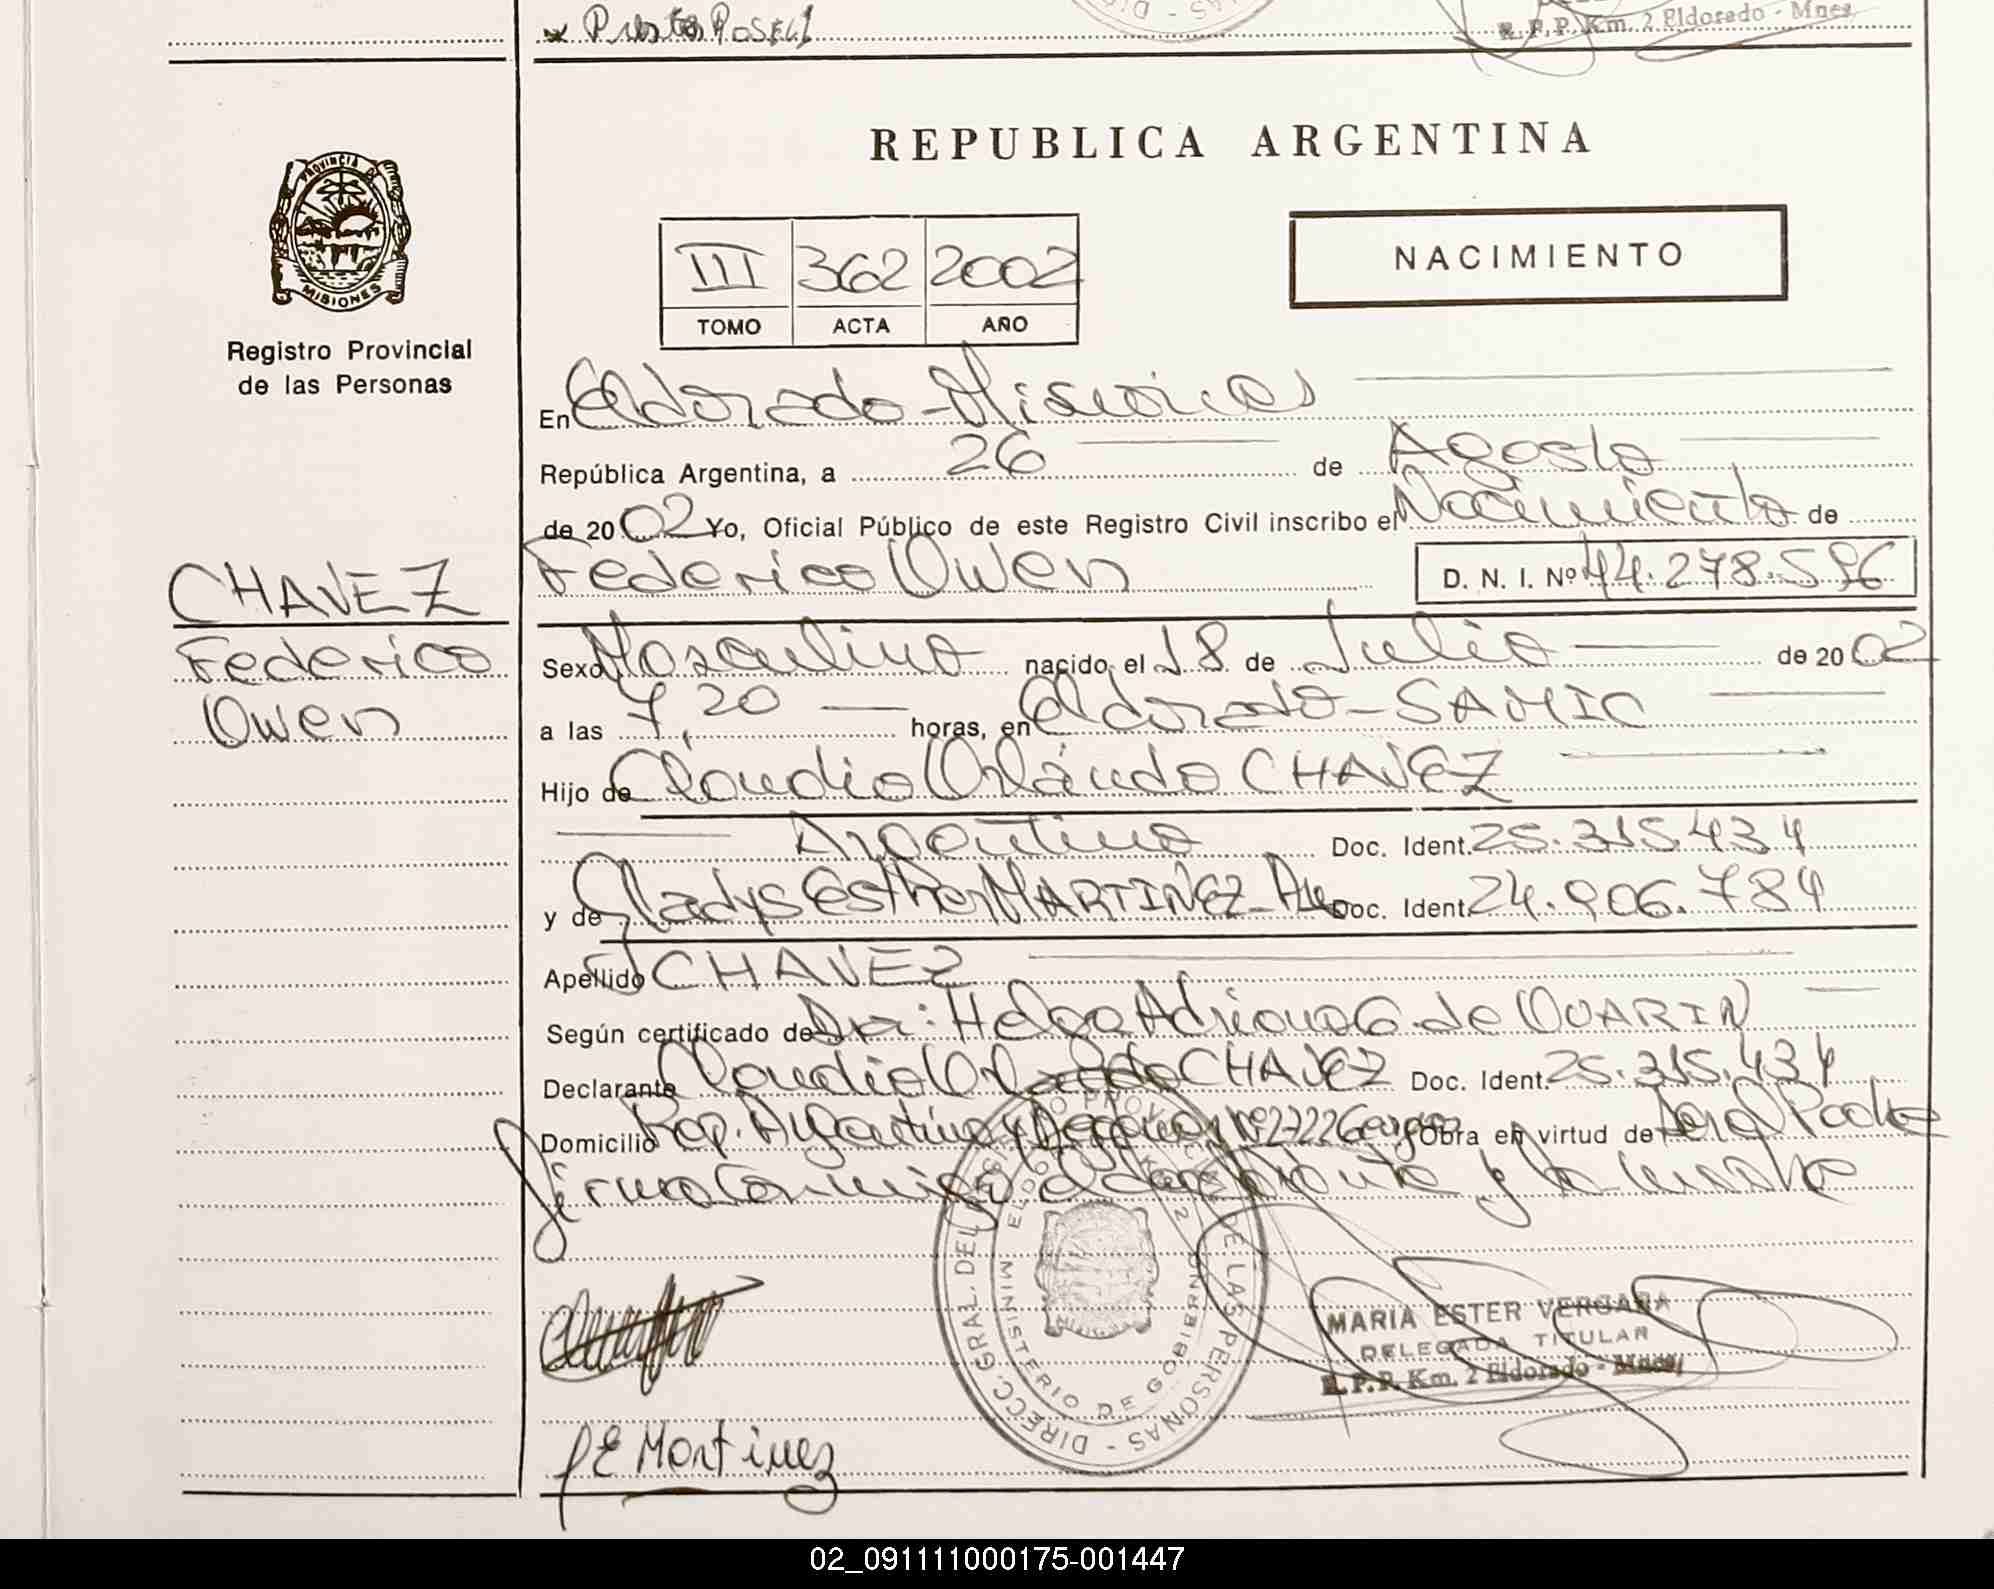 REPUBLICA ARGENTINA
PROVINCIA DE
MISIONES
Registro Provincial
de las Personas
III 362 2002
TOMO ACTA AÑO
NACIMIENTO
En Eldorado - Misiones
República Argentina, a 26 de Agosto
de 2002 Yo, Oficial Público de este Registro Civil inscribo el Nacimiento de
Federico Owen D. N. I. Nº 44.278.596
CHAVEZ
Federico
Owen
Sexo Masculino nacido el 18 de Julio de 2002
a las 7,20 horas, en Eldorado - SAMIC
Hijo de Claudio Orlando CHAVEZ
Argentino Doc. Ident. 25.315.434
y de Gladys Esther MARTINEZ - Doc. Ident. 24.906.784
Apellido CHAVEZ
Según certificado de Dra: Helga Adriana G. de OVARIN
Declarante Claudio Orlando CHAVEZ Doc. Ident. 25.315.434
Domicilio Rep. Argentina y Nº 2722 Obra en virtud de ser el Padre
firma conmigo el declarante y la madre
DIRECC. GRAL. DEL REGISTRO PROVINCIAL DE LAS PERSONAS
MINISTERIO DE GOBIERNO
ELDORADO
MARIA ESTER VERGARA
DELEGADA TITULAR
R.P.P. Km. 2 Eldorado - Mnes.
E Martinez
R.P.P. Km. 2 Eldorado - Mnes.
02_091111000175-001447